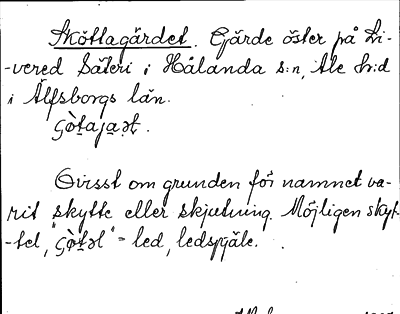 Sköttagärdet. Gärde öster på Li-
-vered Säteri i Hålanda s:n, Ale h:d
i Älfsborgs län.
Ovisst om grunden för namnet va-
rit skytte eller skjutning. Möjligen skyt-
-tel, = led, ledspjäle.